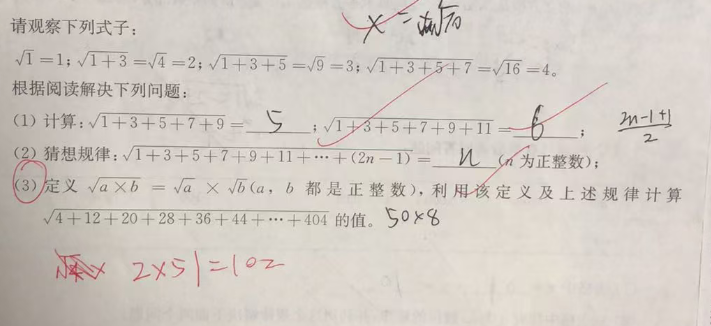 x = ±√10
请观察下列式子：
√1=1；√1+3=√4=2；√1+3+5=√9=3；√1+3+5+7=√16=4。
根据阅读解决下列问题：
(1) 计算：√1+3+5+7+9=5；√1+3+5+7+9+11=6； (2n-1+1)/2
(2) 猜想规律：√1+3+5+7+9+11+⋯+(2n-1)=n（n 为正整数）；
(3) 定义 √a×b = √a × √b(a，b 都是正整数)，利用该定义及上述规律计算
√4+12+20+28+36+44+⋯+404 的值。50×8
2×51=102